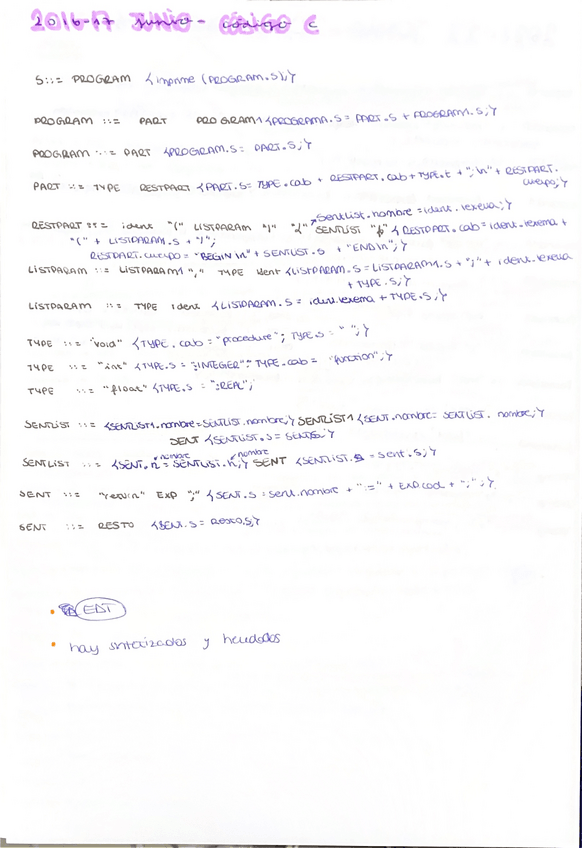 2016-17 junio - código C
S::= PROGRAM {imprime (PROGRAM.S);}
PROGRAM ::= PART PROGRAM1 {PROGRAMA.S = PART.S + PROGRAM1.S;}
PROGRAM ::= PART {PROGRAM.S = PART.S;}
PART ::= TYPE RESTPART {PART.S = TYPE.cab + RESTPART.cab + TYPE.t + ";\n" + RESTPART.
cuerpo;}
SentList.nombre = ident.lexema;}
RESTPART ::= ident "(" LISTPARAM ")" "{" SENTLIST "}" { RESTPART.cab = ident.lexema +
"(" + LISTPARAM.S + ")";
RESTPART.cuerpo = "BEGIN \n" + SENTLIST.S + "END\n";}
LISTPARAM ::= LISTPARAM1 "," TYPE ident {LISTPARAM.S = LISTPARAM1.S + ";" + ident.lexema
+ TYPE.S;}
LISTPARAM ::= TYPE ident {LISTPARAM.S = ident.lexema + TYPE.S;}
TYPE ::= "void" {TYPE.cab = "procedure"; TYPE.S = " ";}
TYPE ::= "int" {TYPE.S = ":INTEGER"; TYPE.cab = "function";}
TYPE ::= "float" {TYPE.S = ":REAL";
SENTLIST ::= {SENTLIST1.nombre = SENTLIST.nombre;} SENTLIST1 {SENT.nombre = SENTLIST.nombre;}
SENT {SENTLIST.S =
nombre nombre
SENTLIST ::= {SENT.n = SENTLIST.n;} SENT {SENTLIST.S = Sent.S;}
SENT ::= "return" EXP ";" {SENT.S = sent.nombre + ":=" + EXP.cod + ";";}
SENT ::= RESTO {SENT.S = RESTO.S;}
• EDT
• hay sintetizados y heredados